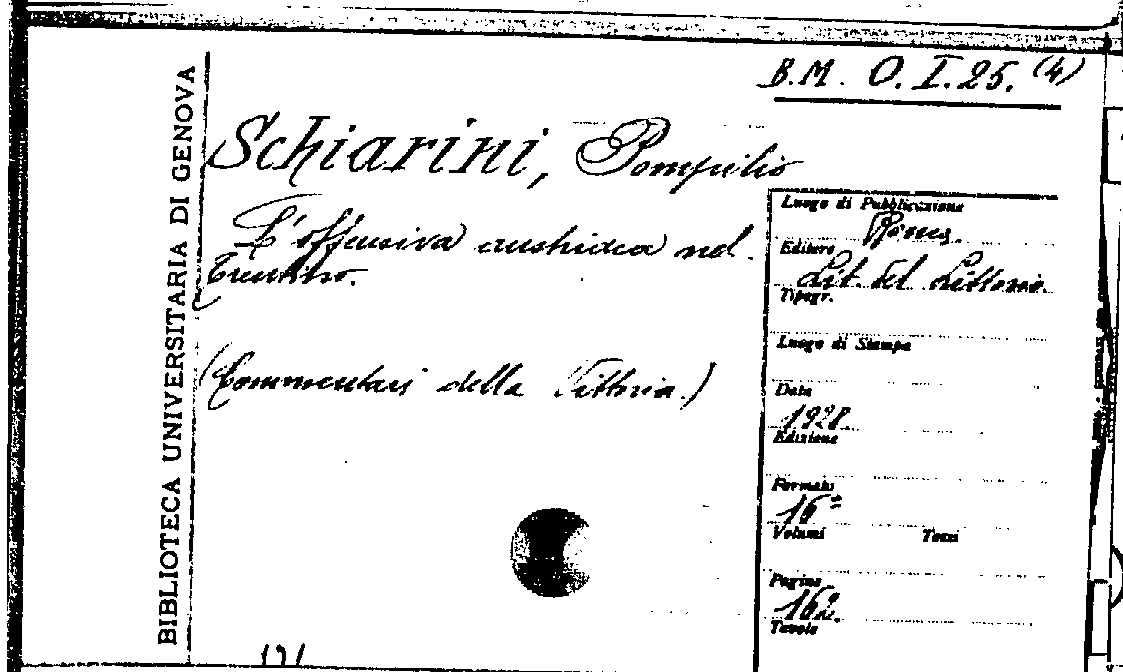 B.M. O.I.25. (4)
BIBLIOTECA UNIVERSITARIA DI GENOVA
Schiarini, Pompilio
L'offensiva austriaca nel
Trentino.
(Commentari della Vittoria.)
Luogo di Pubblicazione
Roma.
Editore
Lit. del Littorio.
Tipogr.
Luogo di Stampa
Data
1928.
Edizione
Formato
16º
Volumi Tomi
Pagine
162.
Tavole